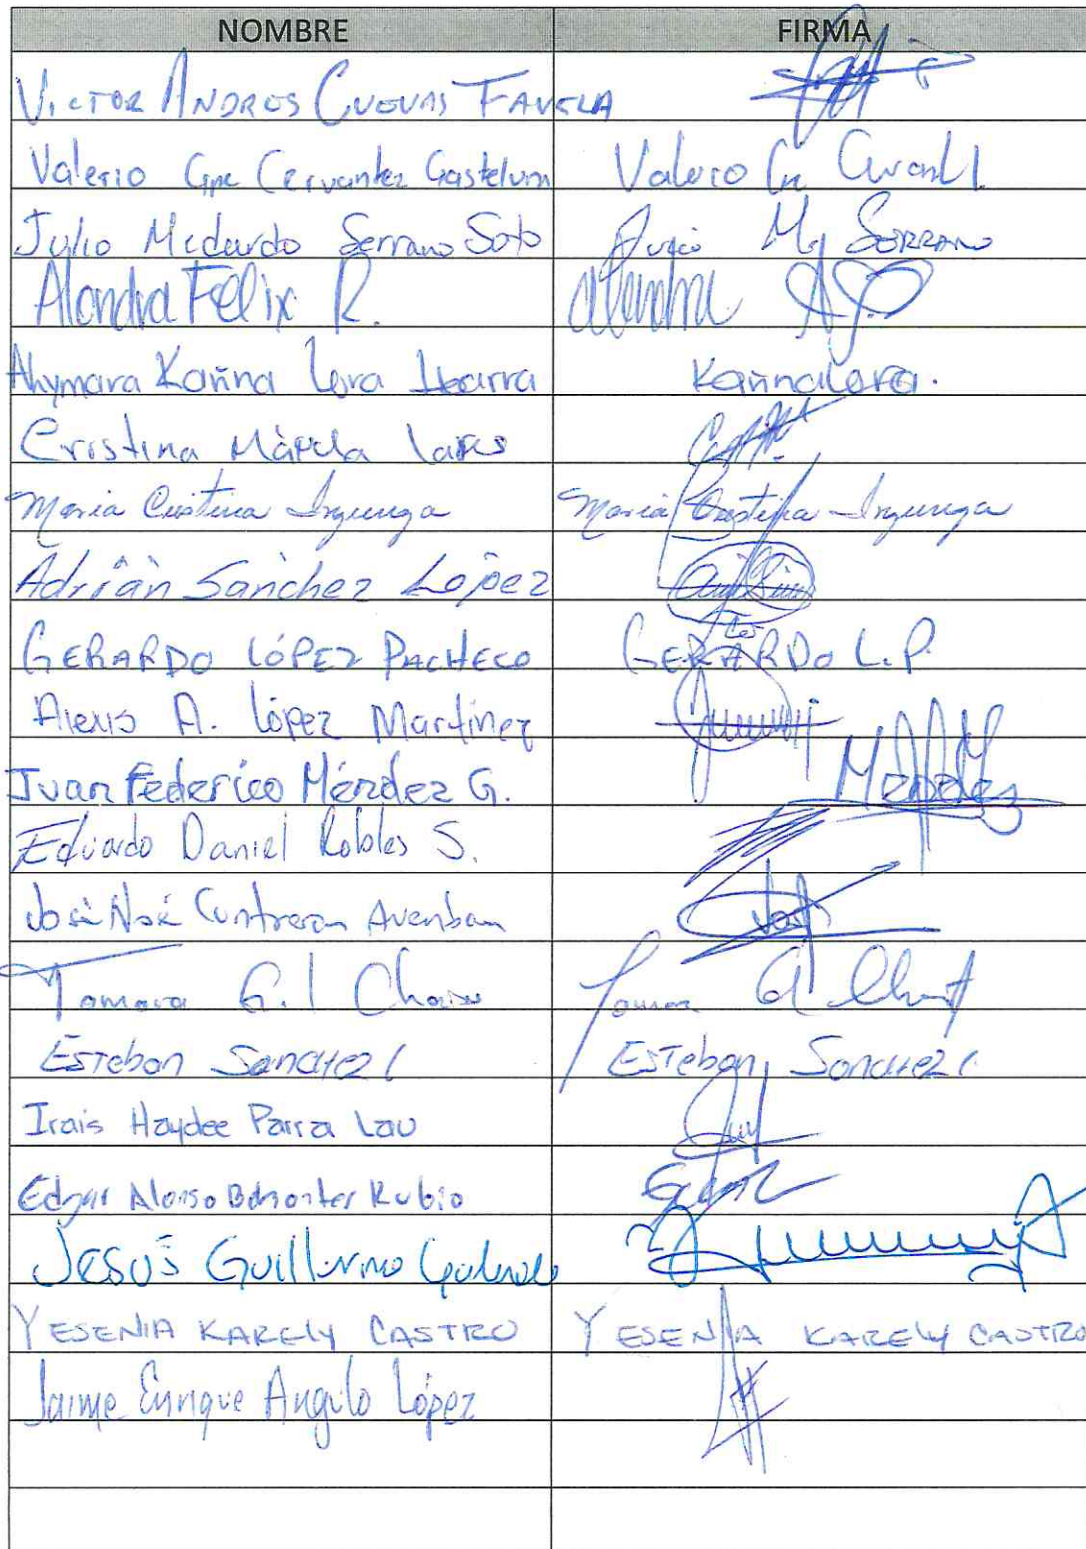 NOMBRE FIRMA
VICTOR ANDRES CUEVAS FAVELA
Valerio Gpe Cervantez Gastelum Valerio
Julio Medardo Serrano Soto Julio M SERRANO
Alondra Felix R.
Ahymara Karina Lora Ibarra Karina Lora.
Cristina Lares
Maria Cristina Inzunza Maria Cristina Inzunza
Adrián Sánchez López
GERARDO LÓPEZ PACHECO GERARDO L.P.
Alexis A. López Martínez
Juan Federico Méndez G. Méndez
Eduardo Daniel Robles S.
José Noé Contreras José
Tamara G. I
Esteban SANCHEZ Esteban SANCHEZ
Irais Haydee Parra Lau
Edgar Alonso Rubio
JESÚS Guillermo
YESENIA KARELY CASTRO YESENIA KARELY CASTRO
Jaime Enrique Angulo López